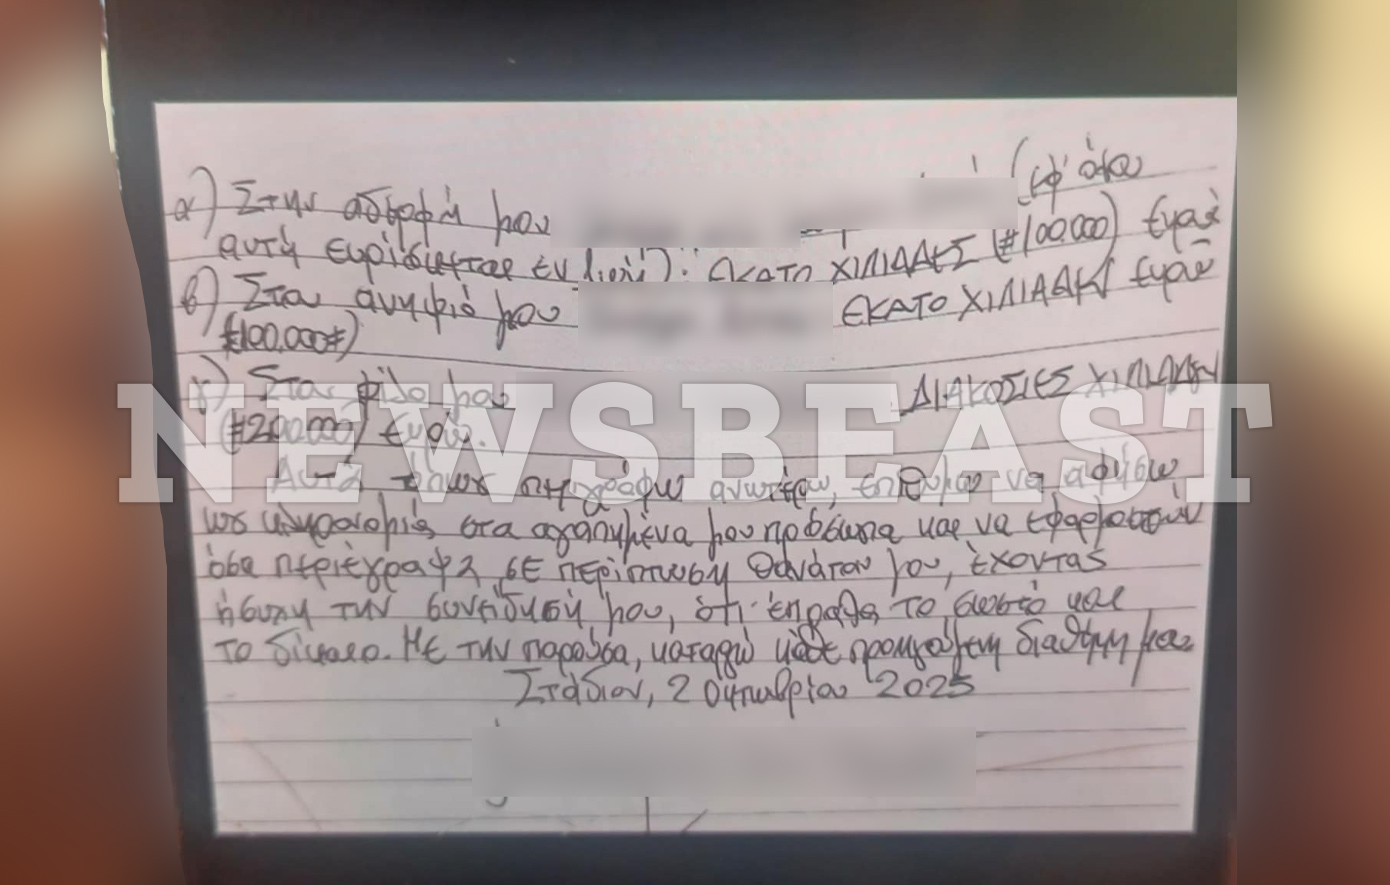 α) Στην αδερφή μου (εφ' όσον
αυτή ευρίσκεται εν ζωή): ΕΚΑΤΟ ΧΙΛΙΑΔΕΣ (#100.000) Ευρώ
β) Στον ανηψιό μου ΕΚΑΤΟ ΧΙΛΙΑΔΕΣ Ευρώ
(#100.000#)
γ) Στον φίλο μου ΔΙΑΚΟΣΙΕΣ ΧΙΛΙΑΔΕΣ
(#200.000) Ευρώ.
NEWSBEAST
Αυτά όπως περιγράφω ανωτέρω, επιθυμώ να αφήσω
ως κληρονομιά, στα αγαπημένα μου πρόσωπα και να εφαρμοστούν
όσα περιέγραψα, σε περίπτωση θανάτου μου, έχοντας
ήσυχη την συνείδησή μου, ότι έπραξα το σωστό και
το δίκαιο. Με την παρούσα, καταργώ κάθε προηγούμενη διαθήκη μου.
Στάδιον, 2 Οκτωβρίου 2025